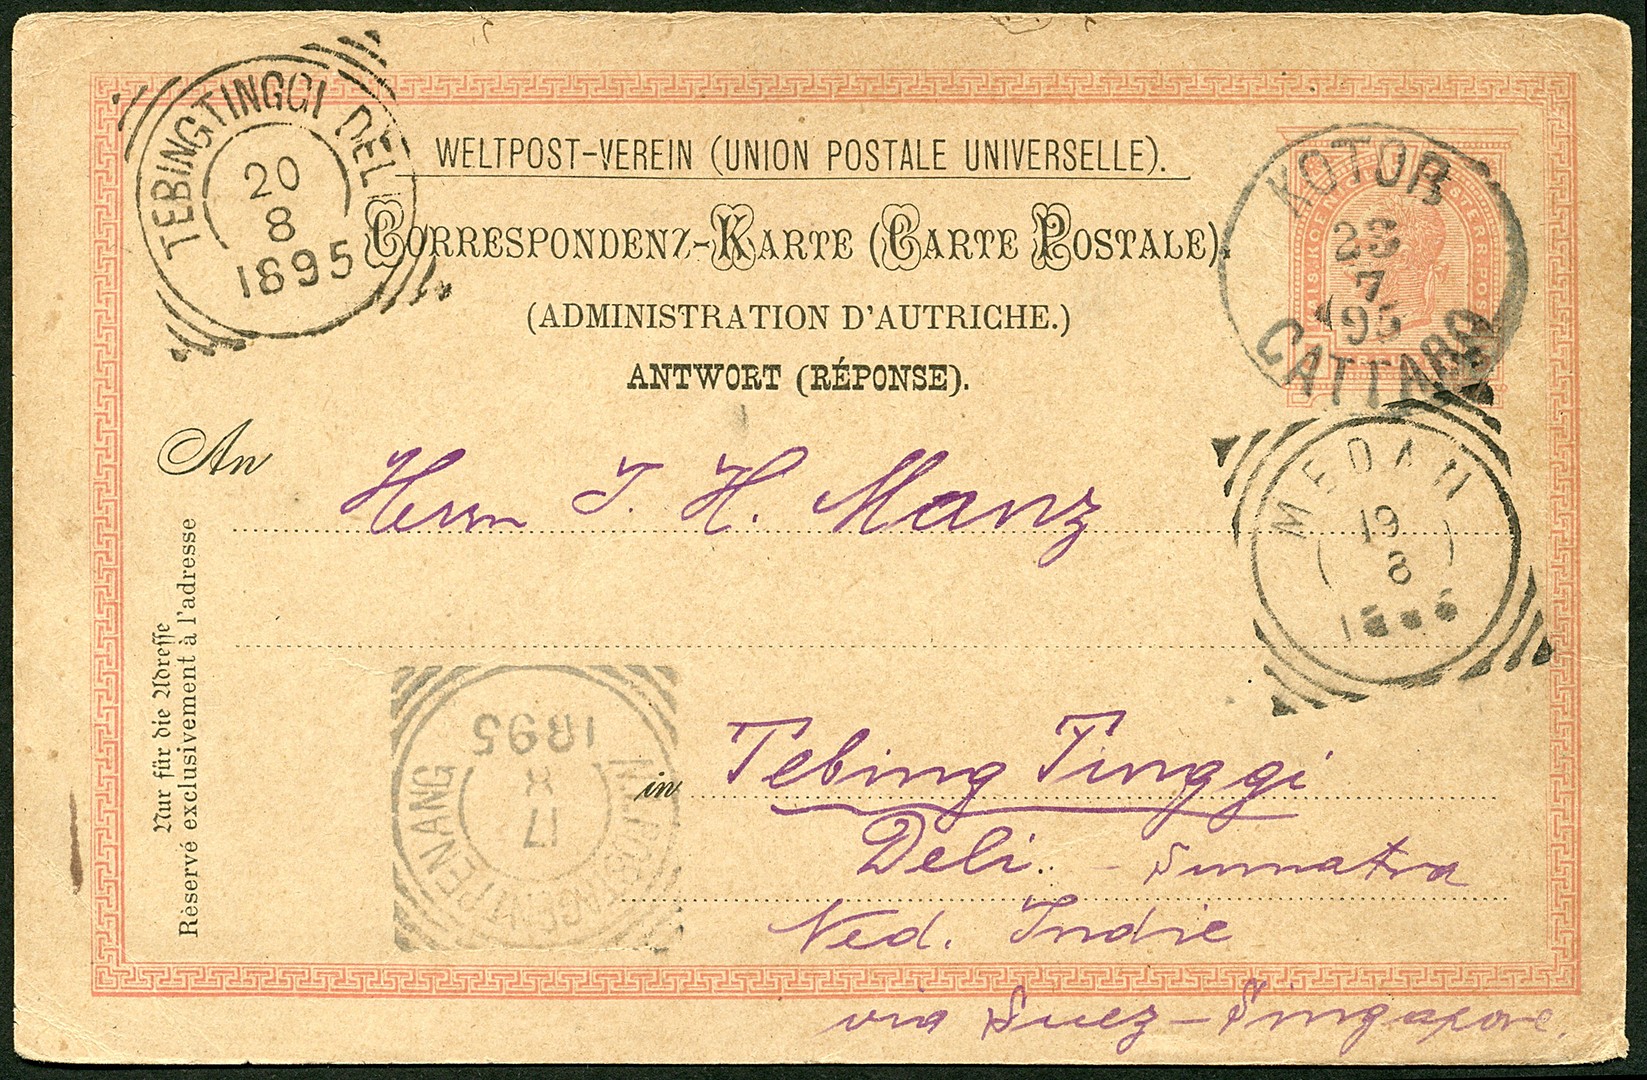 TEBINGTINGGI DELI
20
8
1895
WELTPOST-VEREIN (UNION POSTALE UNIVERSELLE).
CORRESPONDENZ-KARTE (CARTE POSTALE).
(ADMINISTRATION D'AUTRICHE.)
ANTWORT (RÉPONSE).
KOTOR
7
95
CATTARO
An
Herrn J. H. Manz
MEDAN
19
8
Nur für die Adresse
Réservé exclusivement à l'adresse
N.I. POSTAGENT PENANG
17
8
1895
in Tebing Tinggi
Deli. - Sumatra
Ned. Indie
via Suez - Singapore.